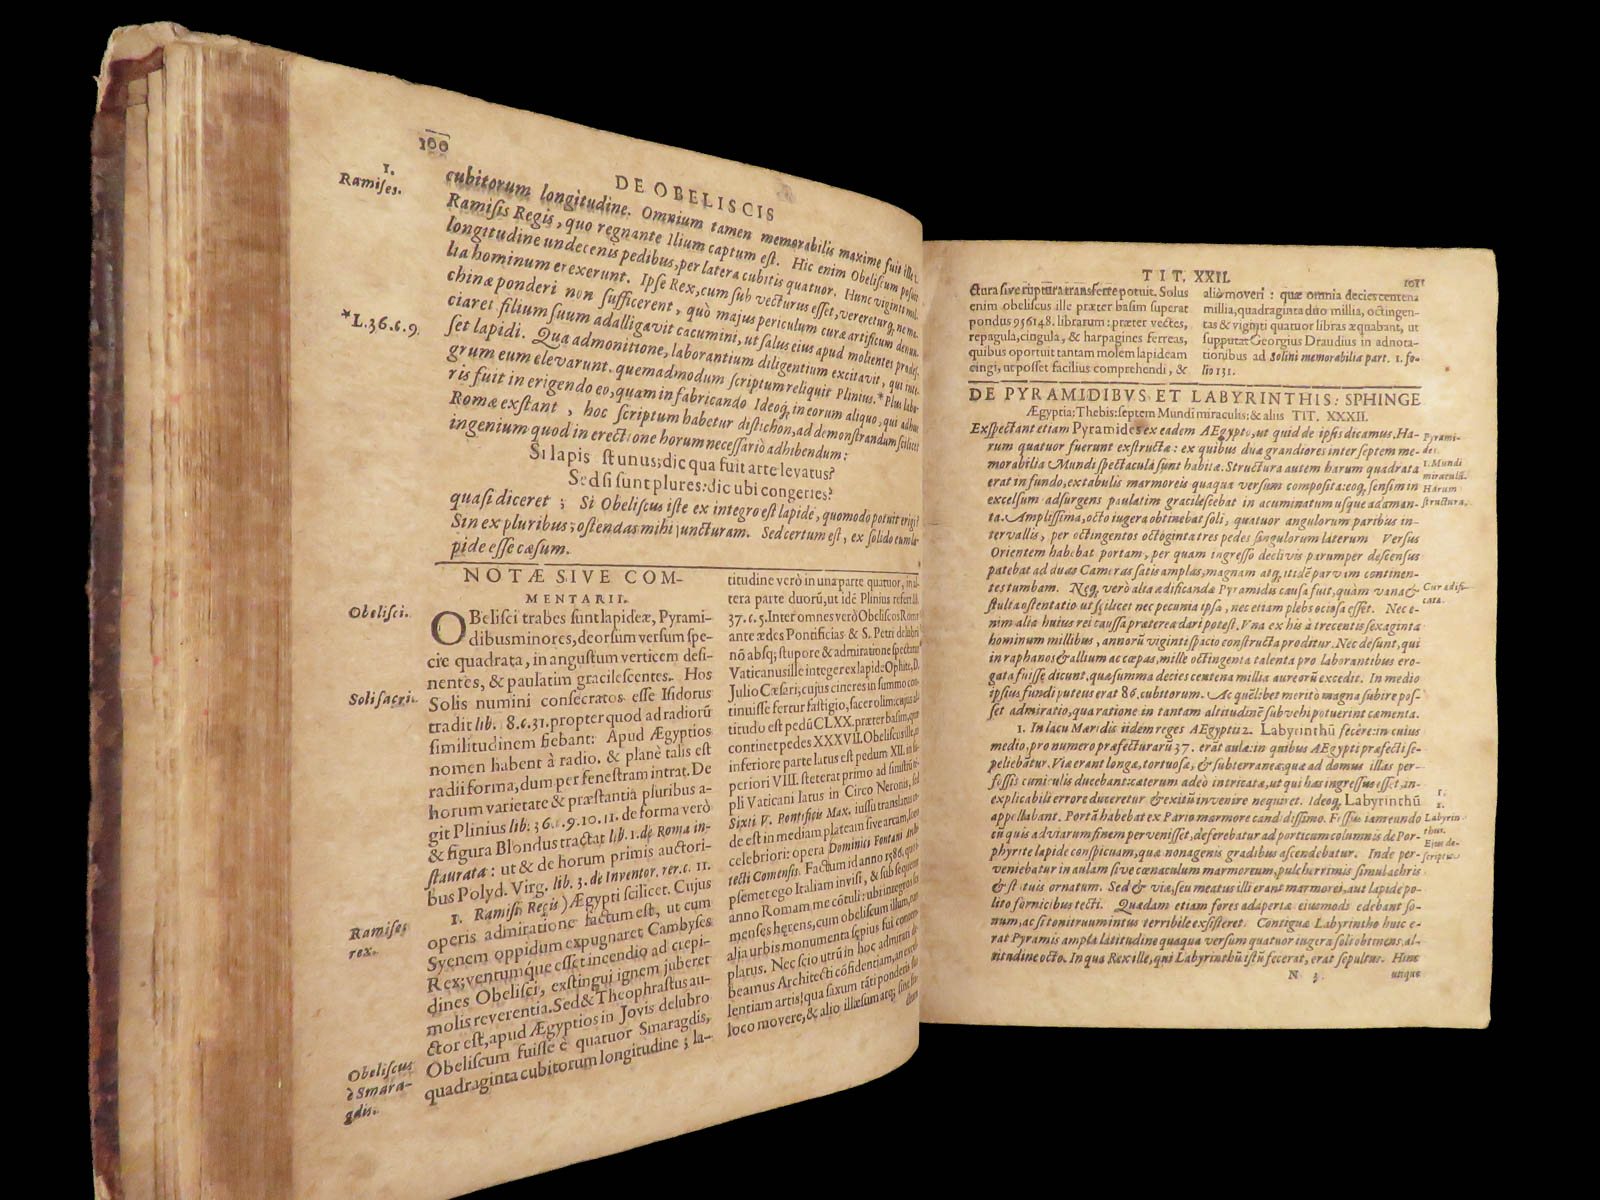 100
DE OBELISCIS
1.
Ramises.
cubitorum longitudine. Omnium tamen memorabilis maxime fuit ille 1.
Ramisis Regis, quo regnante Ilium captum est. Hic enim Obeliscum posuit
longitudine undecenis pedibus, per latera cubitis quatuor. Hunc viginti mil-
lia hominum erexerunt. Ipse Rex, cum sub vecturus esset, vereretur q; ne ma-
chinæ ponderi non sufficerent, quò majus periculum curæ artificum denun-
ciaret filium suum adalligavit cacumini, ut salus ejus apud molientes prodes-
*L. 36. c. 9.
set lapidi. Qua admonitione, laborantium diligentium excitavit, qui inte-
grum eum elevarunt. quemadmodum scriptum reliquit Plinius. * Plus labo-
ris fuit in erigendo eo, quam in fabricando Ideoq; in eorum aliquo, qui adhuc
Romæ exstant, hoc scriptum habetur distichon, ad demonstrandum scilicet
ingenium quod in erectione horum necessariò adhibendum:
Si lapis st unus; dic qua fuit arte levatus?
Sed si sunt plures: dic ubi congeries?
quasi diceret; Si Obeliscus iste ex integro est lapide, quomodo potuit erigi?
Sin ex pluribus; ostendas mihi juncturam. Sed certum est, ex solido eum la-
pide esse cæsum.
NOTÆ SIVE COM-
MENTARII.
Obelisci.
OBelisci trabes sunt lapideæ, Pyrami-
dibus minores, deorsum versum spe-
cie quadrata, in angustum verticem desi-
nentes, & paulatim gracilescentes. Hos
Soli sacri.
Solis numini consecratos esse Isidorus
tradit lib. 8. c. 31. propter quod ad radiorũ
similitudinem fiebant: Apud Ægyptios
nomen habent à radio. & planè talis est
radii forma, dum per fenestram intrat. De
horum varietate & præstantiâ pluribus a-
git Plinius lib. 36. c. 9. 10. 11. de forma verò
& figura Blondus tractat lib. 1. de Roma in-
staurata: ut & de horum primis auctori-
bus Polyd. Virg. lib. 3. de Inventor. rer. c. 11.
1. Ramisis Regis) Ægypti scilicet. Cujus
Ramises
rex.
operis admiratione factum est, ut cum
Syenem oppidum expugnaret Cambyses
Rex; ventumque esset incendio ad crepi-
dines Obelisci, exstingui ignem juberet
molis reverentia. Sed & Theophrastus au-
ctor est, apud Ægyptios in Jovis delubro
Obeliscus
è Smara-
gdis.
Obeliscum fuisse è quatuor Smaragdis,
quadraginta cubitorum longitudine; la-
titudine verò in una parte quatuor, in al-
tera parte duorũ, ut idẽ Plinius refert lib.
37. c. 5. Inter omnes verò Obeliscos Romæ
ante ædes Pontificias & S. Petri delubrũ
nõ absq; stupore & admiratione spectatur
Vaticanus ille integer ex lapide Ophite, D.
Julio Cæsari, cujus cineres in summo con-
tinuisse fertur fastigio, sacer olim: cujus al-
titudo est pedũ CLXX. præter basim, quæ
continet pedes XXXVII. Obeliscus ille, in
inferiore parte latus est pedum XII. in su-
periori VIII. steterat primo ad sinistrũ tẽ-
pli Vaticani latus in Circo Neronis, sed
Sixti V. Pontificis Max. iussu translatus in-
de est in mediam plateam sive aream, loco
celebriori: opera Dominici Fontani Archi-
tecti Comensis. Factum id anno 1586. quo i-
psemet ego Italiam invisi, & sub sequenti
anno Romam me cõtuli: ubi integros sex
menses hærens, cum obeliscum illum, tum
alia urbis monumenta sæpius fui contem-
platus. Nec scio utrũ in hoc admirari de-
beamus Architecti cõfidentiam, an excel-
lentiam artis; qua saxum tãti ponderis suo
loco movere, & alio illæsum atq; sine fra-
ctura
TIT. XXII.
101
ctura sive ruptura transferre potuit. Solus
enim obeliscus ille præter basim superat
pondus 956148. librarum: præter vectes,
repagula, cingula, & harpagines ferreas,
quibus oportuit tantam molem lapideam
cingi, ut posset facilius comprehendi, &
aliò moveri: quæ omnia decies centena
millia, quadraginta duo millia, octingen-
tas & viginti quatuor libras æquabant, ut
supputat Georgius Draudius in adnota-
tionibus ad Solini memorabilia part. 1. fo-
lio 131.
DE PYRAMIDIBVS ET LABYRINTHIS: SPHINGE
Ægyptia: Thebis: septem Mundi miraculis: & aliis TIT. XXXII.
Exspectant etiam Pyramides ex eadem AEgypto, ut quid de ipsis dicamus. Ha-
rum quatuor fuerunt exstructæ: ex quibus duæ grandiores inter septem me-
Pyrami-
des.
morabilia Mundi spectacula sunt habita. Structura autem harum quadrata
1. Mundi
miracula.
erat in fundo, ex tabulis marmoreis quaqua versum composita: eoq; sensim in
Harum
structura.
excelsum adsurgens paulatim gracilescebat in acuminatum usque adaman-
ta. Amplissima, octo iugera obtinebat soli, quatuor angulorum paribus in-
tervallis, per octingentos octoginta tres pedes singulorum laterum Versus
Orientem habebat portam, per quam ingresso declivis parumper descensus
patebat ad duas Cameras satis amplas, magnam atq; itidẽ parvam continen-
tes tumbam. Neq; verò alia ædificandæ Pyramidis causa fuit, quàm vana &
Cur ædifi-
cata.
stulta ostentatio ut scilicet nec pecunia ipsa, nec etiam plebs ociosa esset. Nec e-
nim alia huius rei caussa præterea dari potest. Vna ex his à trecentis sexaginta
hominum millibus, annorũ viginti spacio constructa proditur. Nec desunt, qui
in raphanos & allium ac cæpas, mille octingenta talenta pro laborantibus ero-
gata fuisse dicunt, quæ summa decies centena millia aureorũ excedit. In medio
ipsius fundi puteus erat 86. cubitorum. Ac quẽlibet meritò magna subire pos-
set admiratio, qua ratione in tantam altitudinẽ subvehi potuerint cæmenta.
1. In lacu Mæridis iidem reges AEgyptii 2. Labyrinthũ fecêre: in cuius
medio, pro numero præfecturarũ 37. erãt aulæ: in quibus AEgypti præfecti se-
peliebãtur. Via erant longæ, tortuosæ, & subterraneæ: quæ ad domus illas per-
fossis cuniculis ducebant: cæterum adeò intricatæ, ut qui has ingressus esset, in-
explicabili errore duceretur & exitũ invenire nequiret. Ideoq; Labyrinthũ
1.
2.
Labyrin-
thus.
appellabant. Portã habebat ex Pario marmore candidissimo. Fessus iam eundo
cũ quis ad viarum finem pervenisset, deferebatur ad porticum columnis de Por-
Ejus de-
scriptio.
phyrite lapide conspicuam, quæ nonagenis gradibus ascendebatur. Inde per-
veniebatur in aulam sive cœnaculum marmoreum, pulcherrimis simulachris
& statuis ornatum. Sed & viæ, seu meatus illi erant marmorei, aut lapide po-
lito fornicibus tecti. Quædam etiam fores adapertæ eiusmodi edebant so-
num, ac si tonitru intus terribile existeret. Contigua Labyrintho huic e-
rat Pyramis ampla latitudine quaqua versum quatuor iugera soli obtinens, al-
titudine octo. In qua Rex ille, qui Labyrinthũ istũ fecerat, erat sepultus. Hinc
N 3
utique